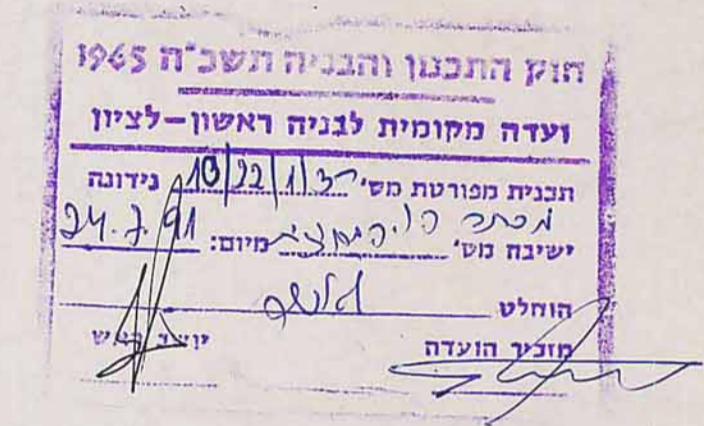 חוק התכנון והבניה תשכ"ה 1965
ועדה מקומית לבניה ראשון-לציון
תכנית מפורטת מס' רצ/1/22/10 נידונה
ישיבה מס' מיום: 24.7.91
הוחלט לאשר
מזכיר הועדה יושב ראש